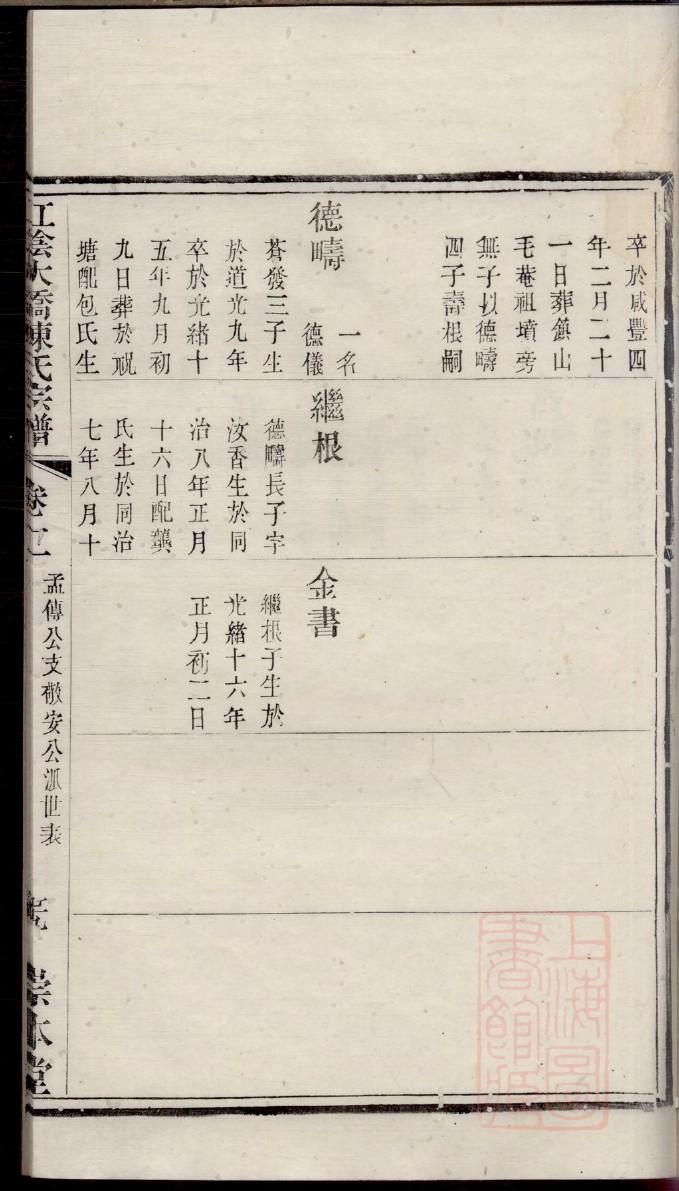 卒於咸豐四
年二月二十
一日葬鎮山
毛菴祖墳旁
無子以德疇
四子壽根嗣
德疇
一名
德儀
蒼發三子生
於道光九年
卒於光緒十
五年九月初
九日葬於祝
塘配包氏生
繼根
德疇長子字
汝香生於同
治八年正月
十六日配龔
氏生於同治
七年八月十
金書
繼根子生於
光緒十六年
正月初二日
江陰大橋陳氏宗譜
卷十二
孟傳公支敬安公派世表
崇本堂
上海圖
書館藏